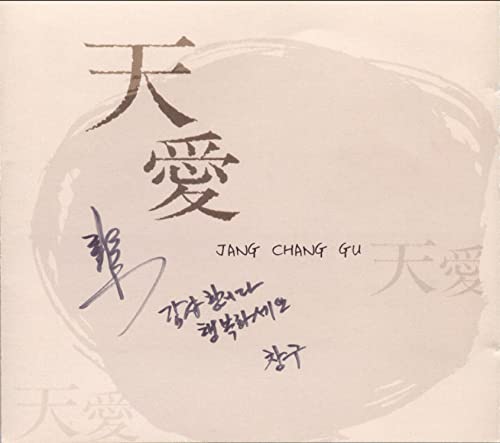 天
愛
JANG CHANG GU
天愛
감사합니다
행복하세요
창구
天愛